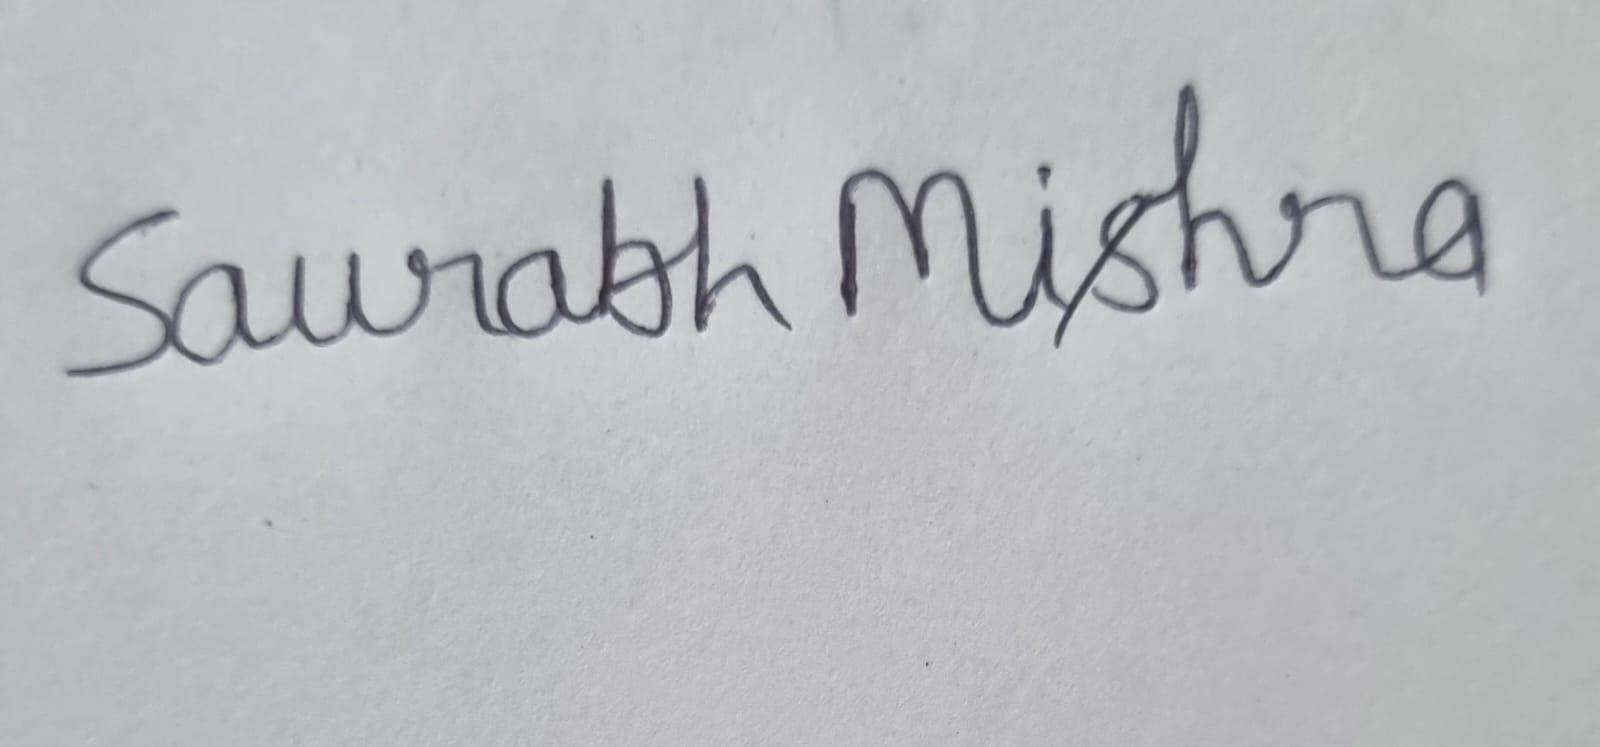 Saurabh Mishra